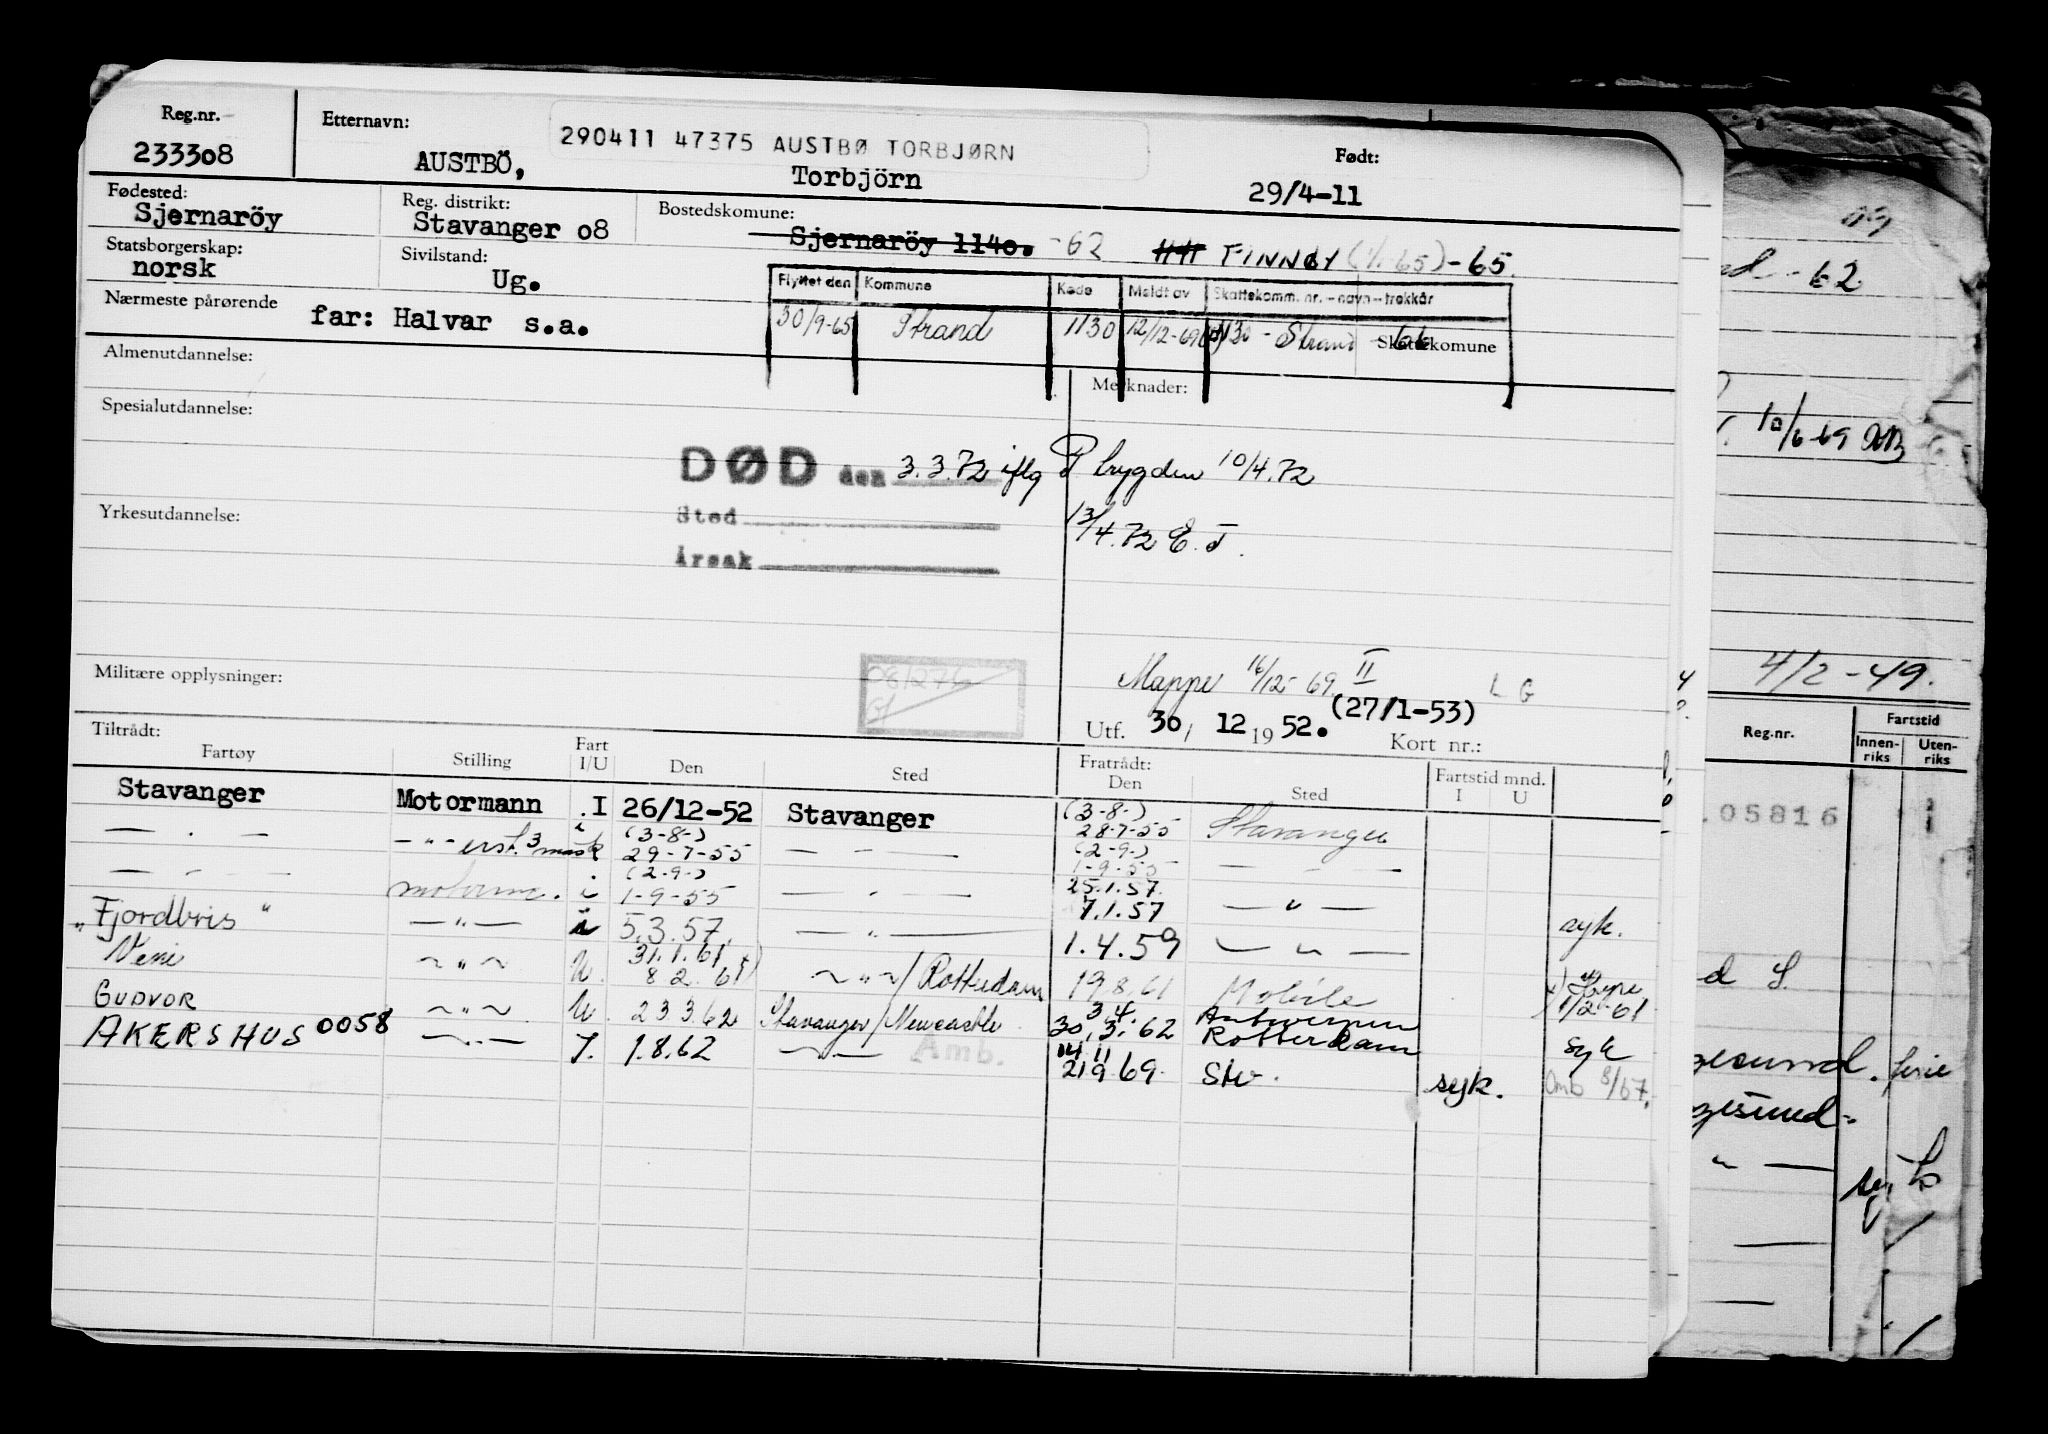 Reg.nr. Etternavn: 290411 47375 AUSTBØ TORBJØRN Født:
233308 AUSTBÖ, Torbjörn 29/4-11
Fødested: Reg. distrikt: Bostedskomune:
Sjernaröy Stavanger o8 Sjernaröy 114o. -62 FINNØY (1/1-65) -65.
Statsborgerskap: Sivilstand:
norsk Ug.
Flyttet den Kommune Kode Meldt av Skattekomm. nr. - navn - trekkår
Nærmeste pårørende far: Halvar s.a.
30/9-65 Strand 1130 12/12-69 1130 - Strand - 66 Skattekomune
Almenutdannelse: Merknader:
Spesialutdannelse:
DØD den 3.3.72 iflg P. brygden 10/4.72
Yrkesutdannelse: Sted 13/4.72 E. J.
Årsak
Militære opplysninger: 08/276
Mappe 16/12-69 II L G
Utf. 30, 12 1952. (27/1-53) Kort nr.:
Tiltrådt: Fratrådt:
Fartøy Stilling Fart I/U Den Sted Den Sted Fartstid mnd. I U
Stavanger Motormann .I 26/12-52 Stavanger (3-8-) 28-7-55 Stavanger
— . — —"— erst. 3 mask i (3-8-) 29-7-55 — — (2-9-) 1-9-55 — —
— . — motorm. i (2.9-) 1-9-55 — . — 25.1.57. 7.1.57 — " — syk.
"Fjordbris" —"— i 5.3.57. — " — 1.4.59 — " —
Veni ~"~ U. 31.1.61 x) 8 2. 61 ~"~/Rotterdam 19.8.61 Mobile x) Hype 1/2-61
GUDVOR ~"~ U. 23 3.62 Stavanger/Newcastle 3.4. 30.3.62 Antwerpen Rotterdam syk
AKERSHUS 0058 ~"— I. 1.8.62 ~"— Amb. 14 11 21 9 69. Stv. syk. Omb 8/67.
09
-62
10/6-69
4/2-49.
Reg.nr. Fartstid
Innenriks Utenriks
05816
ferie